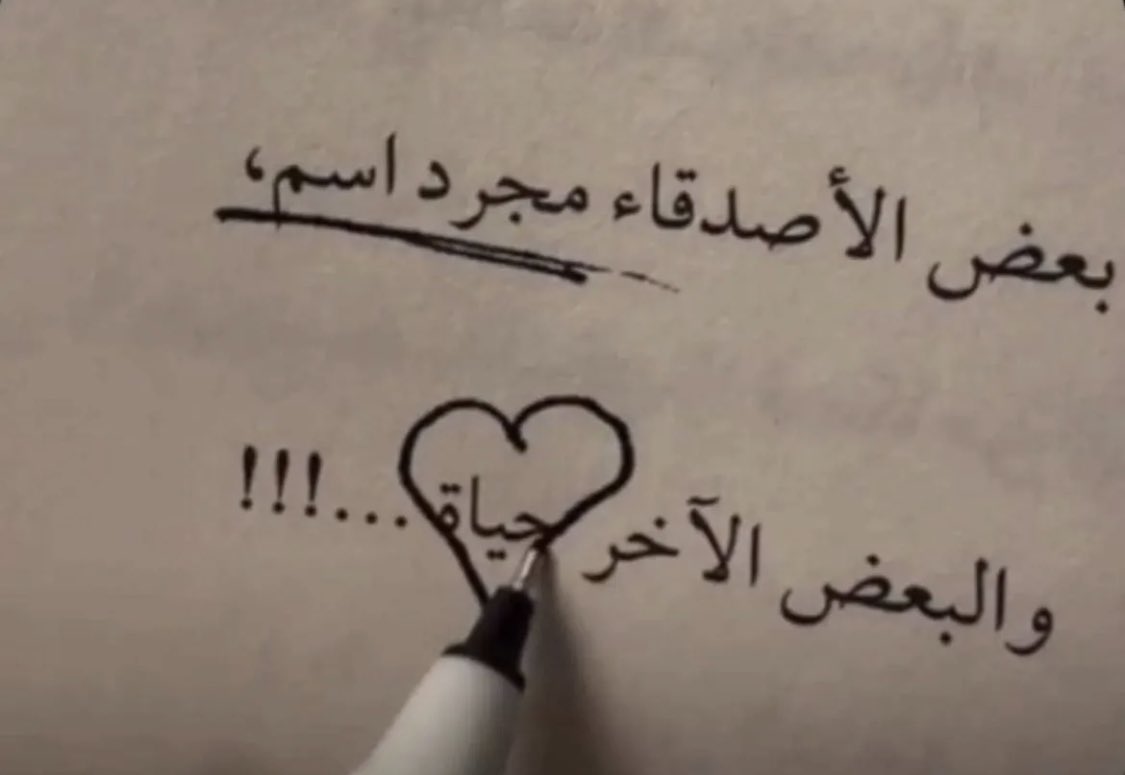 بعض الأصدقاء مجرد اسم،
والبعض الآخر حياة...!!!